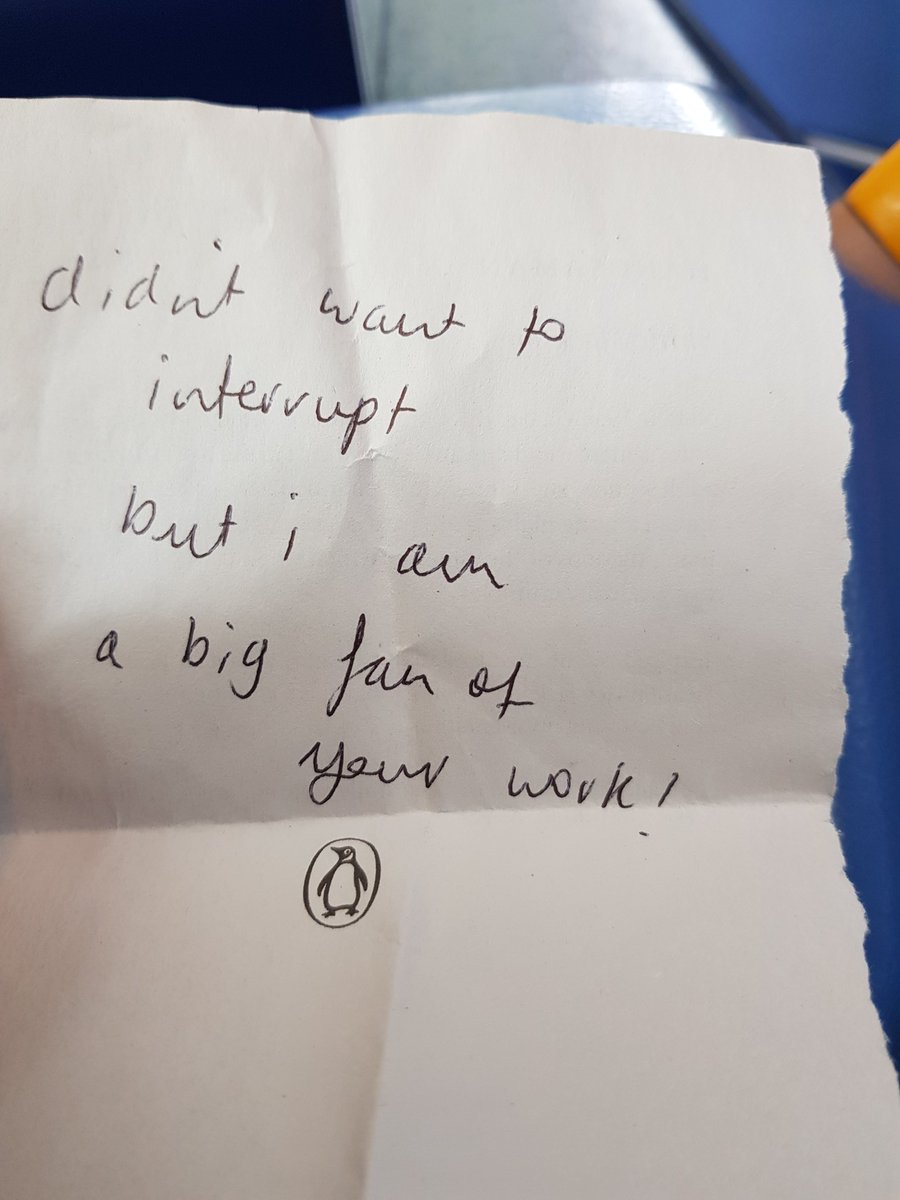 didn't want to
interrupt
but i am
a big fan of
your work!